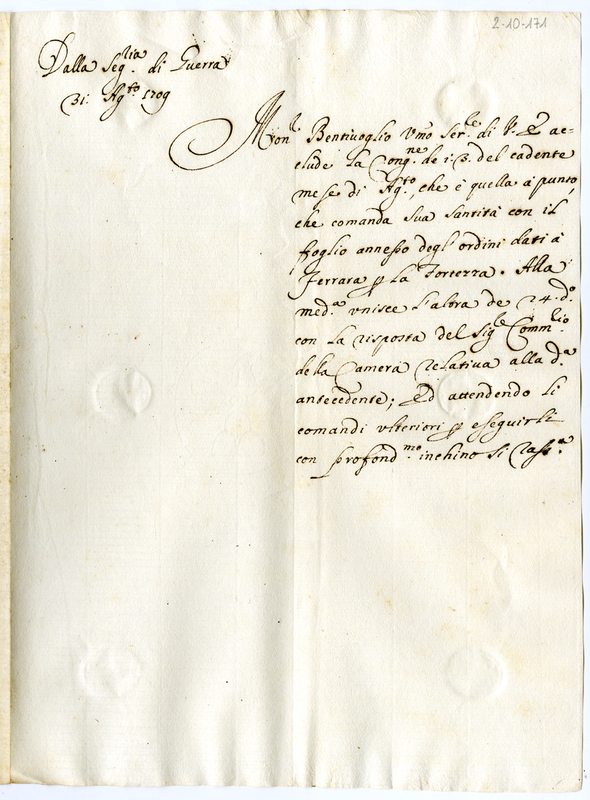 2-10-171
Dalla Seg.lia di Guerra
31. Ag.to 1709
Mon.r Bentivoglio Vmo Ser.re di V. E. ac=
clude la Cong.ne de 13. del cadente
mese di Ag.to, che è quella à punto,
che comanda Sua Santità con il
ffoglio annesso degl'ordini dati à
Ferrara p la Fortezza. Alla
med.a vnisce l'altra de 24. d.o
con la risposta del Sig.re Comm.rio
della Camera relativa alla d.a
antecedente; Ed attendendo li
comandi vlteriori p eseguirli
con profond.mo inchino si rass.a